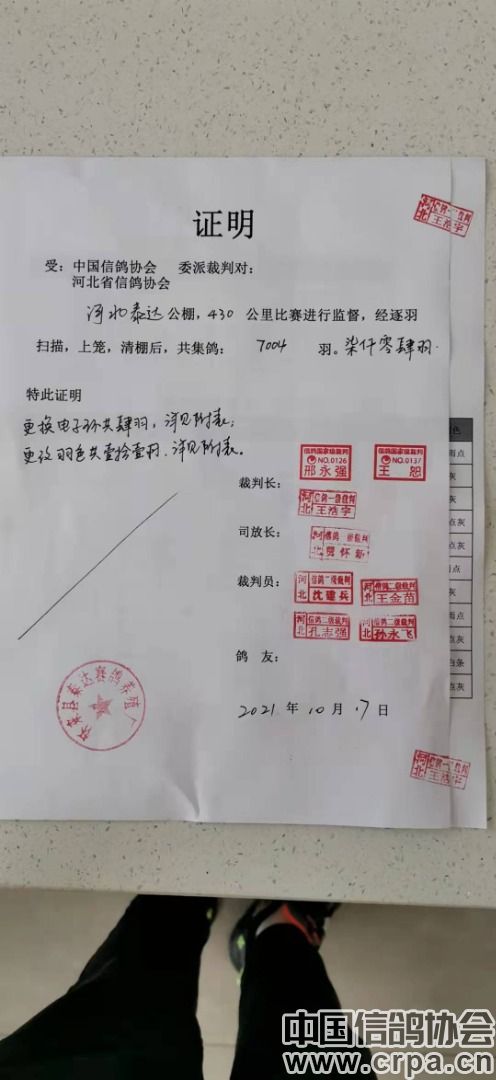 证明
受：中国信鸽协会 委派裁判对：
河北省信鸽协会
河北泰达公棚，430 公里比赛进行监督，经逐羽
扫描，上笼，清棚后，共集鸽： 7004 羽。柒仟零肆羽.
特此证明
更换电子环共肆羽，详见附表；
更改羽色共壹拾壹羽，详见附表。
信鸽国家级裁判 NO.0126 邢永强
信鸽国家级裁判 NO.0137 王恕
裁判长：
河北 信鸽一级裁判 王浩宇
司放长：
裁判员：
河北 信鸽二级裁判 沈建兵
河北 信鸽二级裁判 王金苗
河北 信鸽二级裁判 孔志强
河北 信鸽二级裁判 孙永飞
鸽友：
2021 年 10 月 17 日
县泰达赛鸽养殖厂
河北 信鸽一级裁判 王浩宇
河北 信鸽一级裁判 王浩宇
色
雨点
灰
点灰
点灰
雨点
点灰
白条
点灰
中国信鸽协会
www.crpa.cn